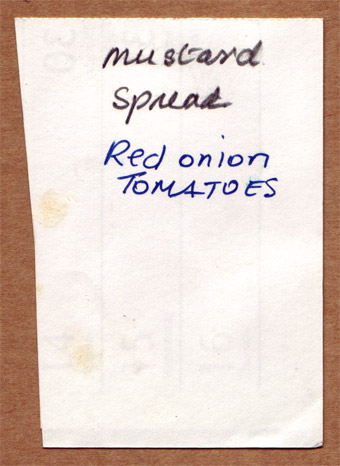 mustard
spread
Red onion
TOMATOES